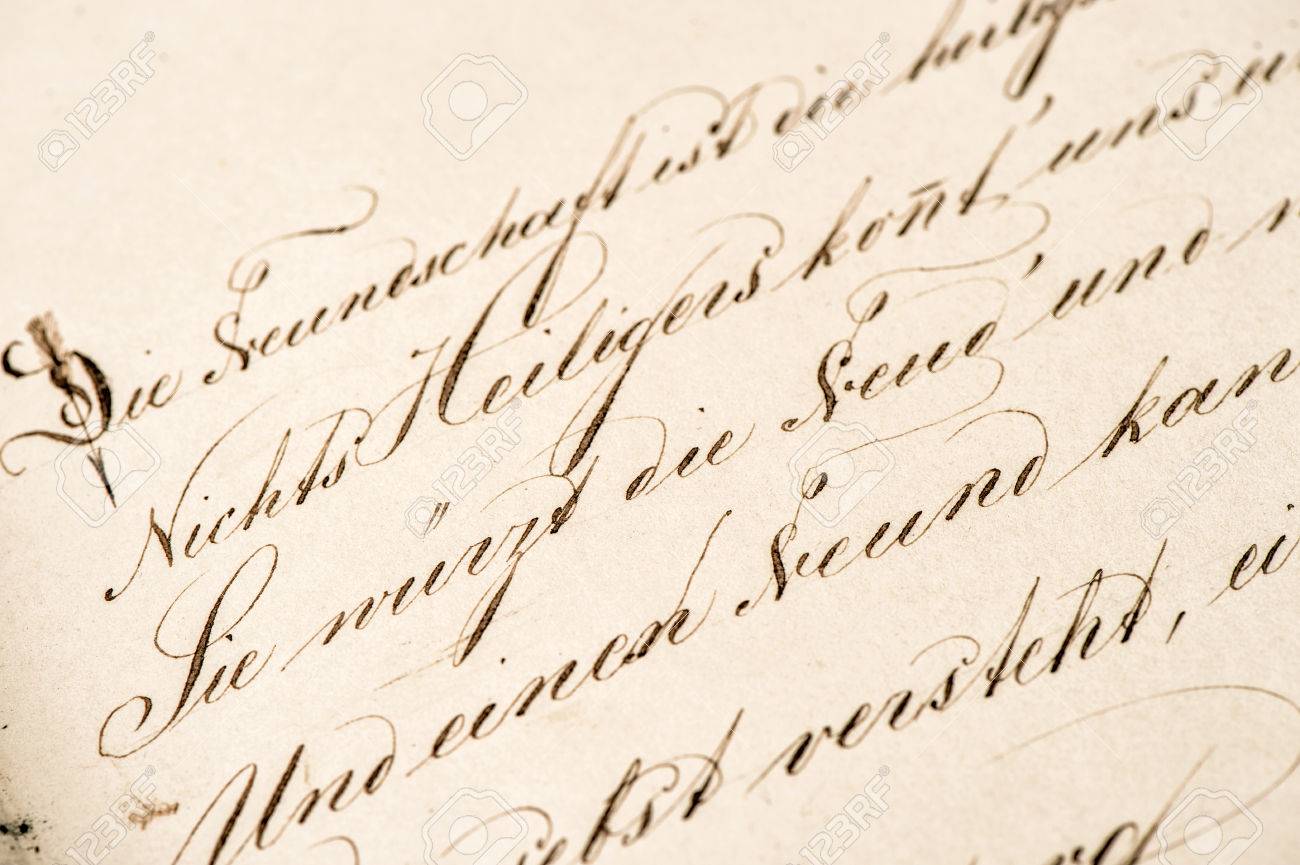 Die Freundschaft ist die heilig
Nichts Heiligers kon̄t' uns
Sie würzt die Freud' und
Und einen Freund kan
iebst versteht, ei